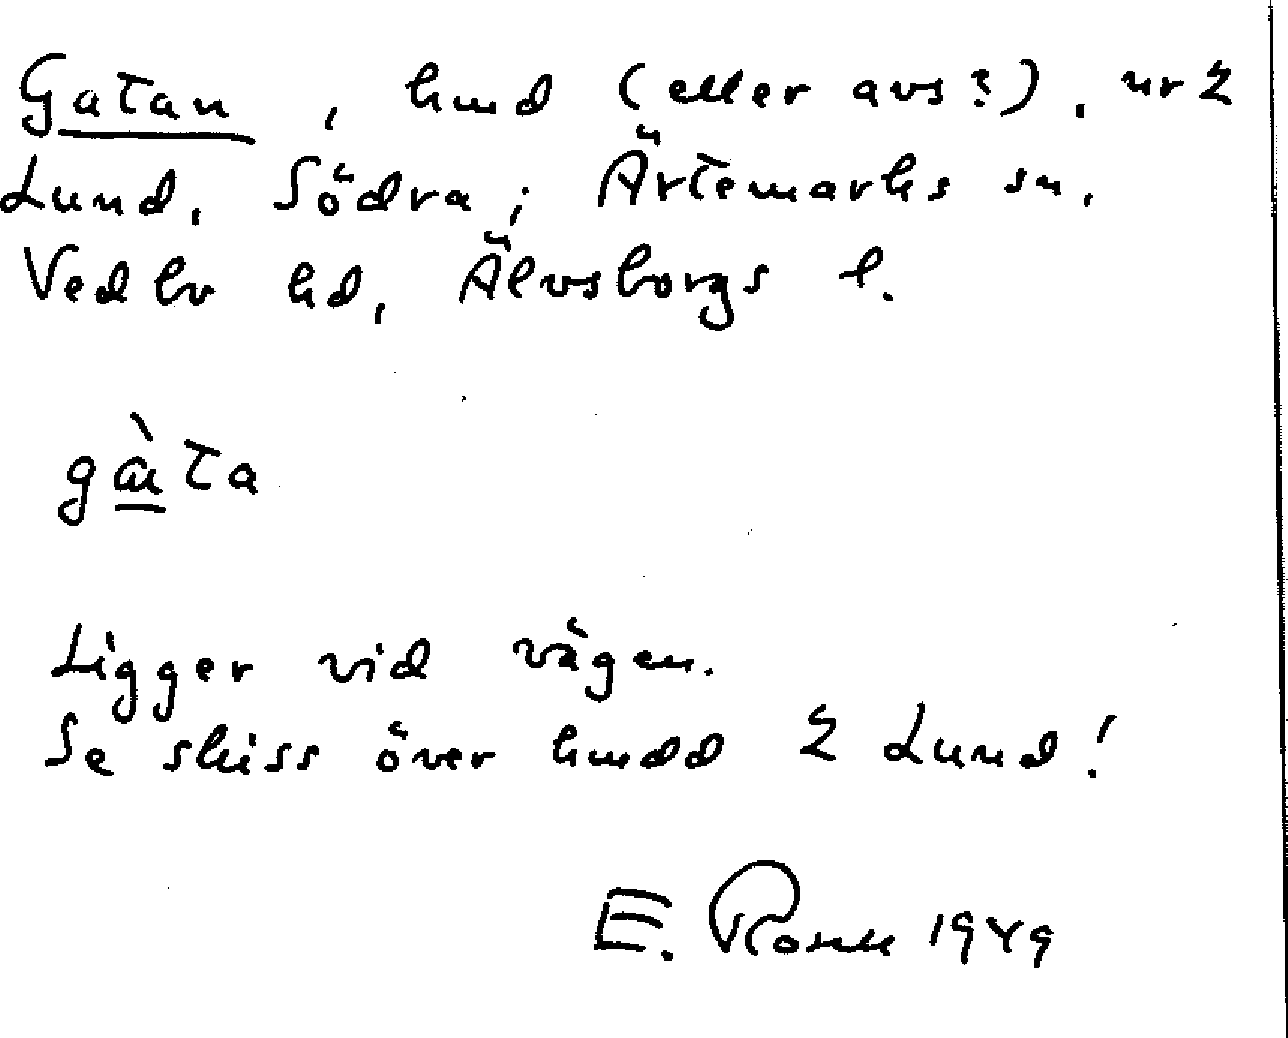 Gatan, hmd (eller avs?), ur 2
Lund, Södra; Ärtemarks sn,
Vedbo hd, Älvsborgs l.
gàta
Ligger vid vägen.
Se skiss över hmdd 2 Lund!
E. 1949